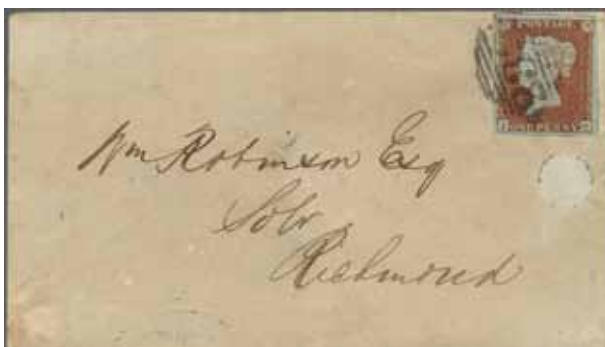 POSTAGE
ONE PENNY
Wm Robinson Esq
Solr
Richmond